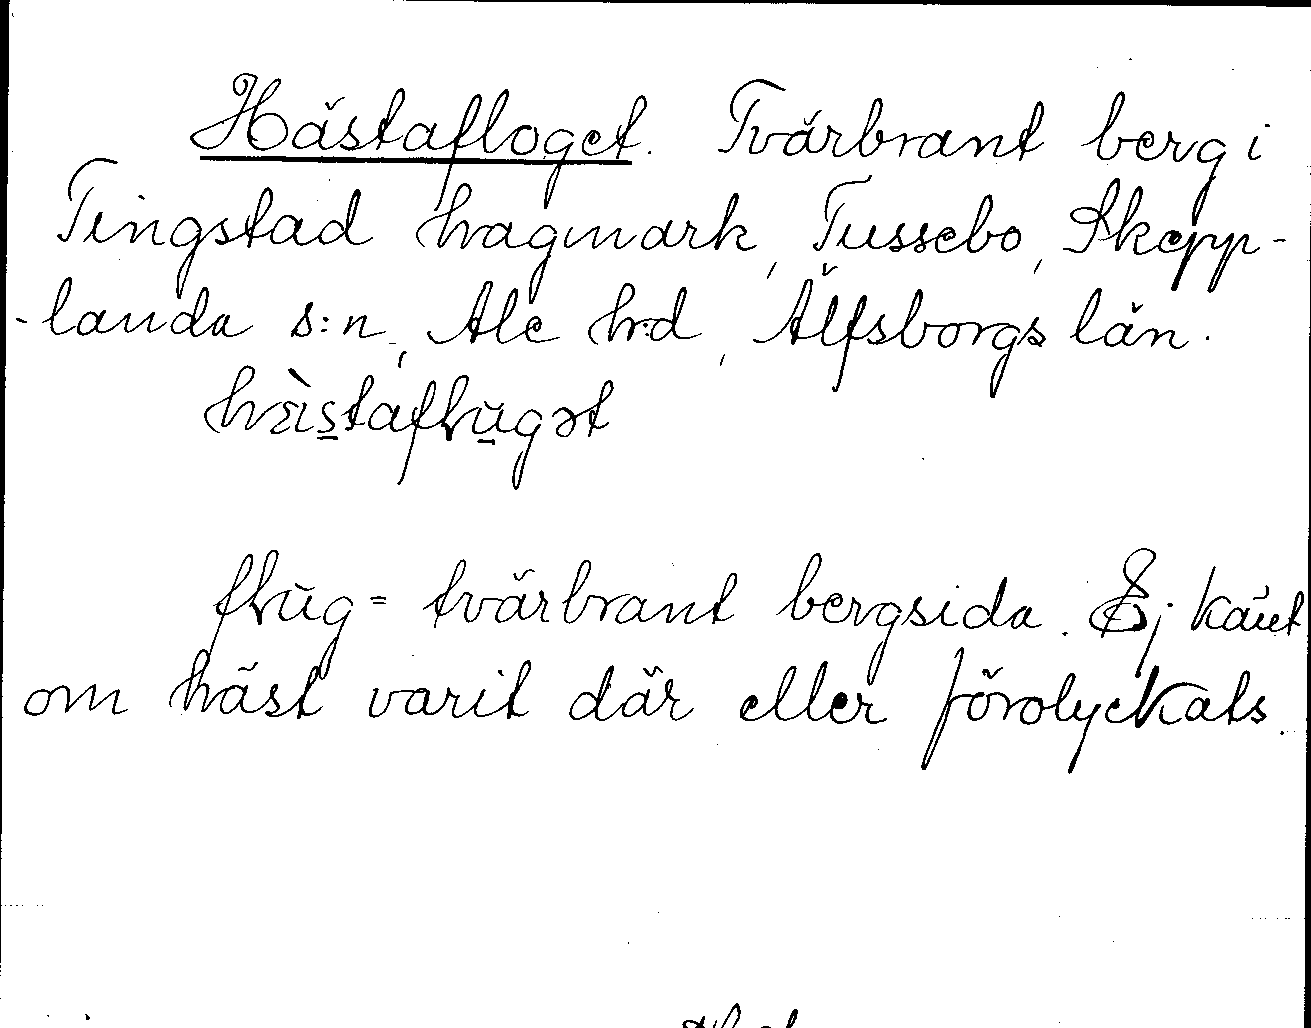 Hästafloget. Tvärbrant berg i
Tingstad hagmark, Tussebo, Skepp-
-landa s:n, Ale h:d, Älfsborgs län.
tvärbrant bergsida. Ej känt
om häst varit där eller förolyckats.